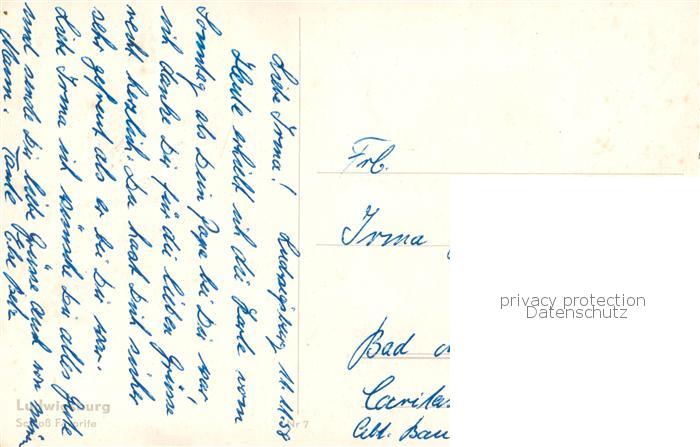 Ludwigsburg, 11.11.58
Liebe Irma!
Heute erhielt ich die Karte vom
Sonntag als Dein Papa bei Dir war,
ich danke Dir für die lieben Grüsse
recht herzlich. Du hast Dich sicher
sehr gefreut als er bei Dir war.
Liebe Irma ich wünsche Dir alles Gute
und sende Dir liebe Grüsse auch von
Mann. Tante Else
Frl.
Irma
Bad
Caritas
Abt. Bau
privacy protection
Datenschutz
Ludwigsburg
Schloß Favorite
Nr 7